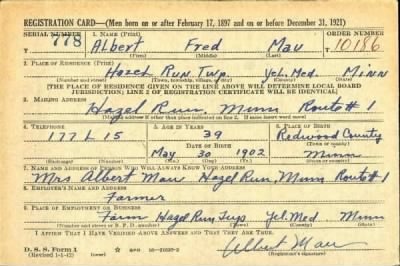 REGISTRATION CARD—(Men born on or after February 17, 1897 and on or before December 31, 1921)
SERIAL NUMBER 1. NAME (Print) ORDER NUMBER
778 Albert Fred Mau 10186
(First) (Middle) (Last)
2. PLACE OF RESIDENCE (Print)
Hazel Run Twp. Yel. Med. Minn
(Number and street) (Town, township, village, or city) (County) (State)
[THE PLACE OF RESIDENCE GIVEN ON THE LINE ABOVE WILL DETERMINE LOCAL BOARD
JURISDICTION; LINE 2 OF REGISTRATION CERTIFICATE WILL BE IDENTICAL]
3. MAILING ADDRESS
Hazel Run. Minn Route #1
(Mailing address if other than place indicated on line 2. If same insert word same)
4. TELEPHONE 5. AGE IN YEARS 6. PLACE OF BIRTH
177 L 15 39 Redwood County
DATE OF BIRTH (Town or county)
May 30 1902 Minn
(Exchange) (Number) (Mo.) (Day) (Yr.) (State or country)
7. NAME AND ADDRESS OF PERSON WHO WILL ALWAYS KNOW YOUR ADDRESS
Mrs Albert Mau Hazel Run, Minn Route #1
8. EMPLOYER'S NAME AND ADDRESS
Farmer
9. PLACE OF EMPLOYMENT OR BUSINESS
Farm Hazel Run Twp Yel. Med Minn
(Number and street or R. F. D. number) (Town) (County) (State)
I AFFIRM THAT I HAVE VERIFIED ABOVE ANSWERS AND THAT THEY ARE TRUE.
D. S. S. Form 1
(Revised 1-1-42) (over) Albert Mau
(Registrant's signature)